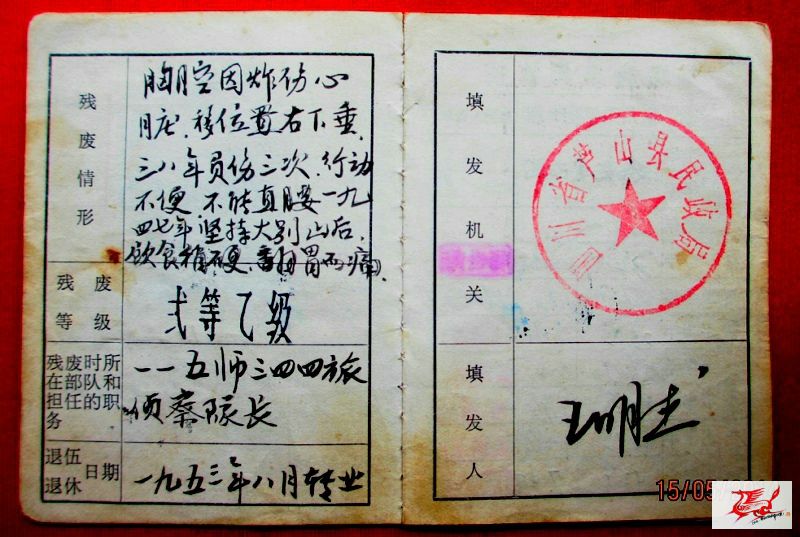 残废情形
胸腔因炸伤心
脏、移位置右下垂、
三八年员伤三次、行动
不便 不能直腰一九
四七年坚持大别山后、
饮食稍硬、翻胃而痛。
残废等级
弍等乙级
残废时所在部队和担任的职务
一一五师三四四旅
侦察队长
退伍退休日期
一九五三年八月转业
填发机关
四川省芦山县民政局
填发人
15/05